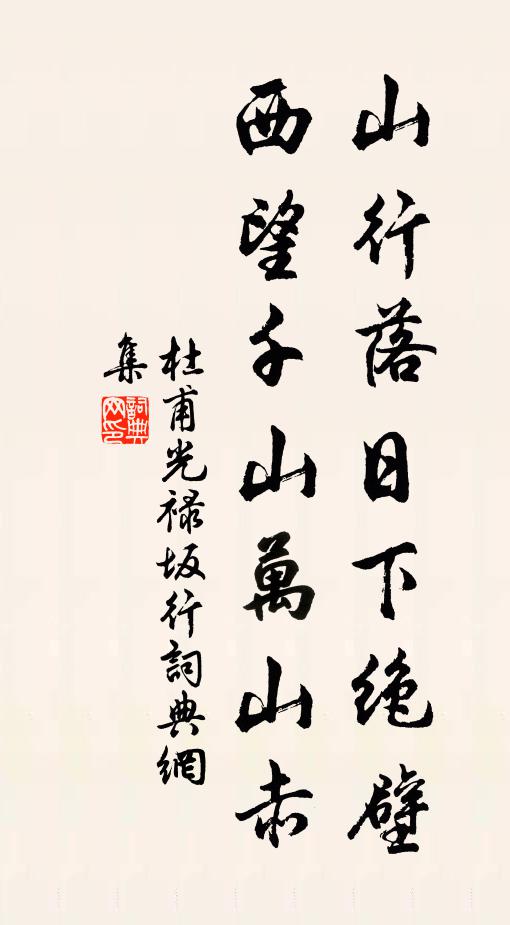 山行落日下绝壁
西望千山萬山赤
杜甫光禄坂行詞典網
集
詞典网印